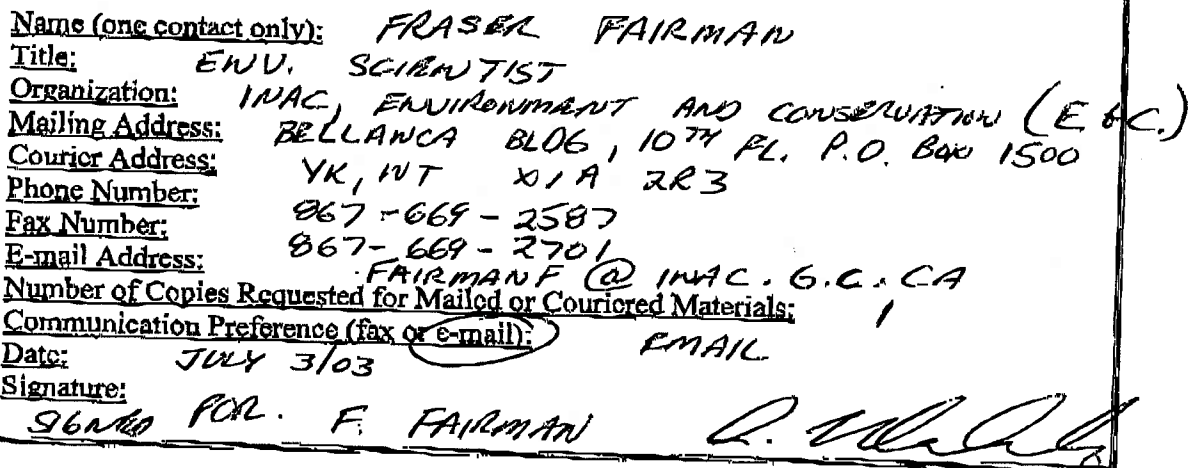 Name (one contact only): FRASER FAIRMAN
Title: ENV. SCIENTIST
Organization: INAC, ENVIRONMENT AND CONSERVATION (E & C.)
Mailing Address: BELLANCA BLDG, 10TH FL. P.O. BOX 1500
Courier Address: YK, NT X1A 2R3
Phone Number: 867-669-2587
Fax Number: 867-669-2701
E-mail Address: FAIRMANF @ INAC.G.C.CA
Number of Copies Requested for Mailed or Couriered Materials: 1
Communication Preference (fax or e-mail): EMAIL
Date: JULY 3/03
Signature:
SIGNED FOR. F. FAIRMAN